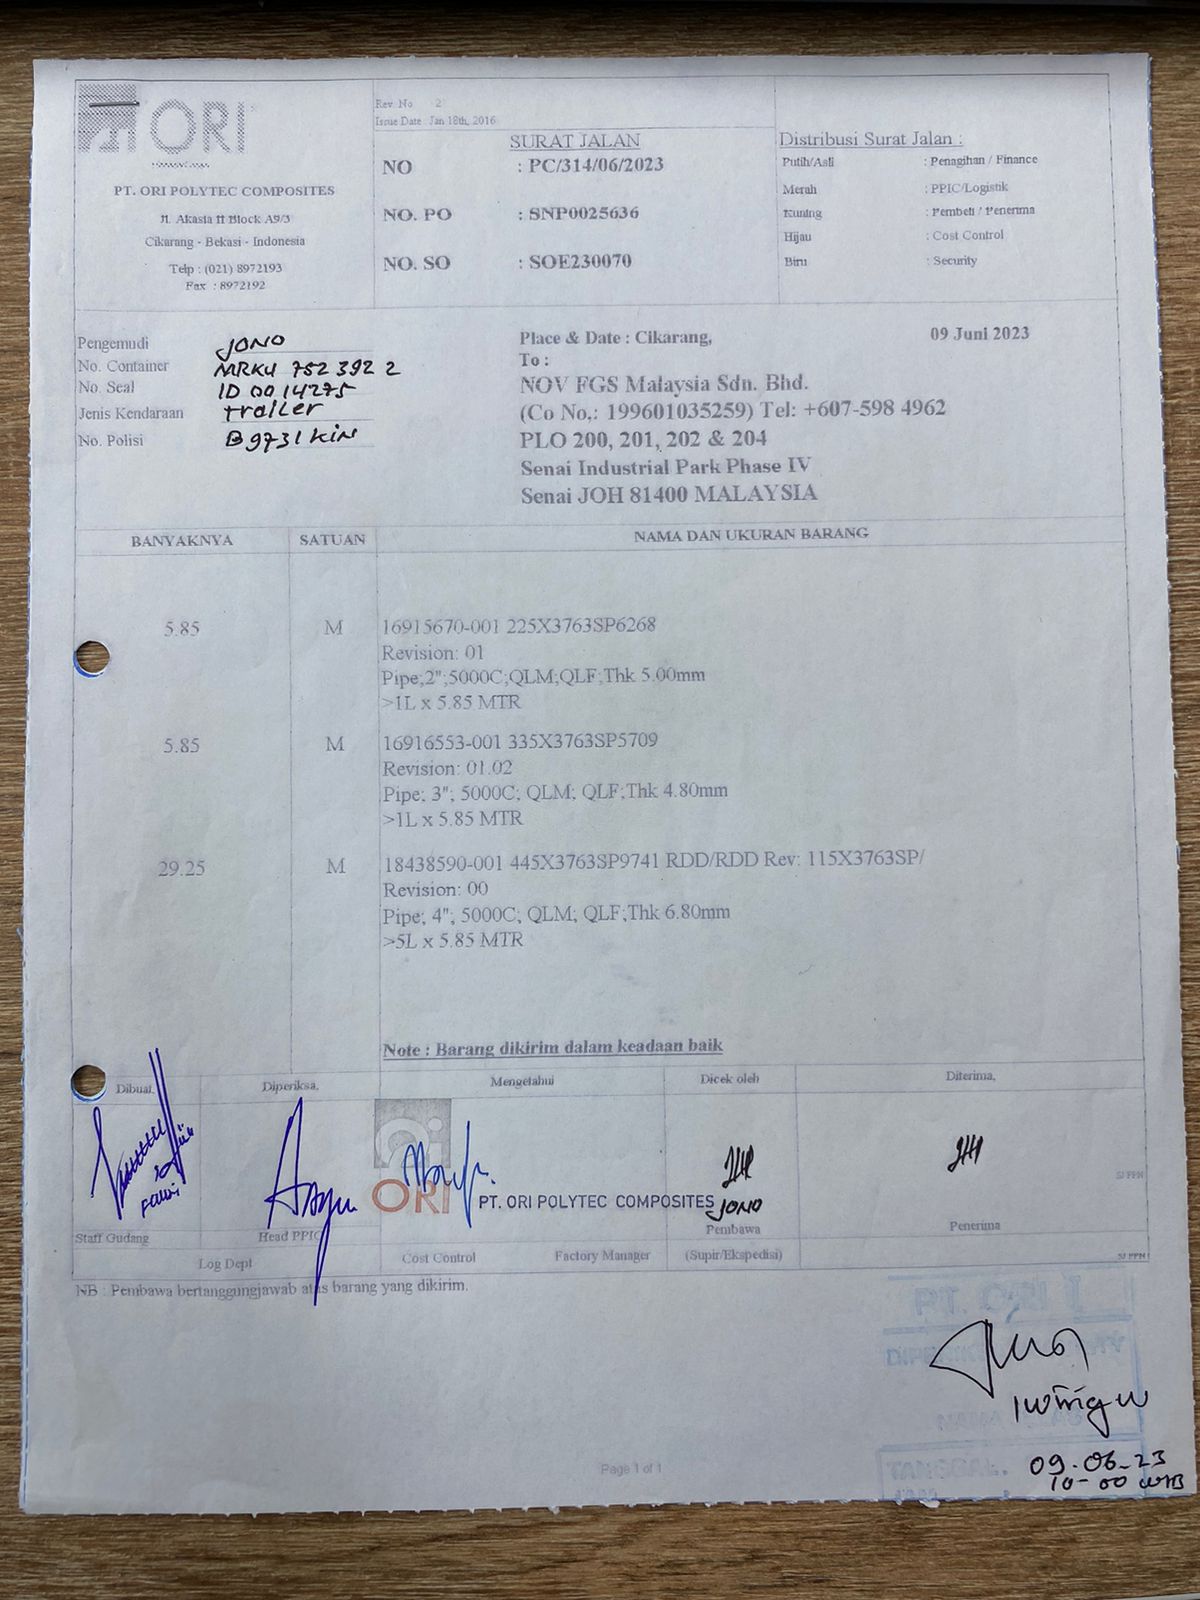 ORI
PT. ORI POLYTEC COMPOSITES
Jl. Akasia II Block A9/3
Cikarang - Bekasi - Indonesia
Telp : (021) 8972193
Fax : 8972192
Rev. No 2
Issue Date : Jan 18th, 2016
SURAT JALAN
NO : PC/314/06/2023
NO. PO : SNP0025636
NO. SO : SOE230070
Distribusi Surat Jalan :
Putih/Asli : Penagihan / Finance
Merah : PPIC/Logistik
Kuning : Pembeli / Penerima
Hijau : Cost Control
Biru : Security
Pengemudi JONO
No. Container MRKU 752 392 2
No. Seal ID 0014275
Jenis Kendaraan trailer
No. Polisi B 9731 KIN
Place & Date : Cikarang, 09 Juni 2023
To :
NOV FGS Malaysia Sdn. Bhd.
(Co No,: 199601035259) Tel: +607-598 4962
PLO 200, 201, 202 & 204
Senai Industrial Park Phase IV
Senai JOH 81400 MALAYSIA
BANYAKNYA SATUAN NAMA DAN UKURAN BARANG
5.85 M 16915670-001 225X3763SP6268
Revision: 01
Pipe;2";5000C;QLM;QLF;Thk 5.00mm
>1L x 5.85 MTR
5.85 M 16916553-001 335X3763SP5709
Revision: 01.02
Pipe; 3"; 5000C; QLM; QLF;Thk 4.80mm
>1L x 5.85 MTR
29.25 M 18438590-001 445X3763SP9741 RDD/RDD Rev: 115X3763SP/
Revision: 00
Pipe; 4"; 5000C; QLM; QLF;Thk 6.80mm
>5L x 5.85 MTR
Note : Barang dikirim dalam keadaan baik
Dibuat, Diperiksa, Mengetahui Dicek oleh Diterima,
ORI PT. ORI POLYTEC COMPOSITES
JONO
SJ PPN
Staff Gudang Head PPIC Pembawa Penerima
Log Dept Cost Control Factory Manager (Supir/Ekspedisi) SJ PPN
NB : Pembawa bertanggungjawab atas barang yang dikirim.
PT. ORI
TANGGAL. 09.06-23
10-00 WIB
Page 1 of 1